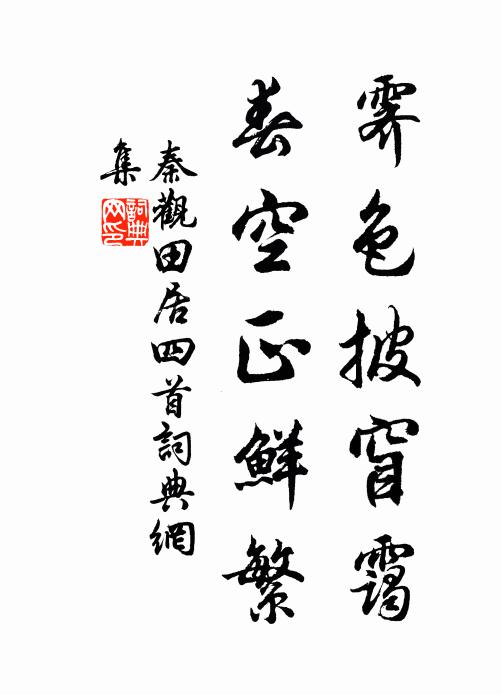 霽色披窅靄
春空正鮮繁
秦觀田居四首詞典網
集
詞典
网印